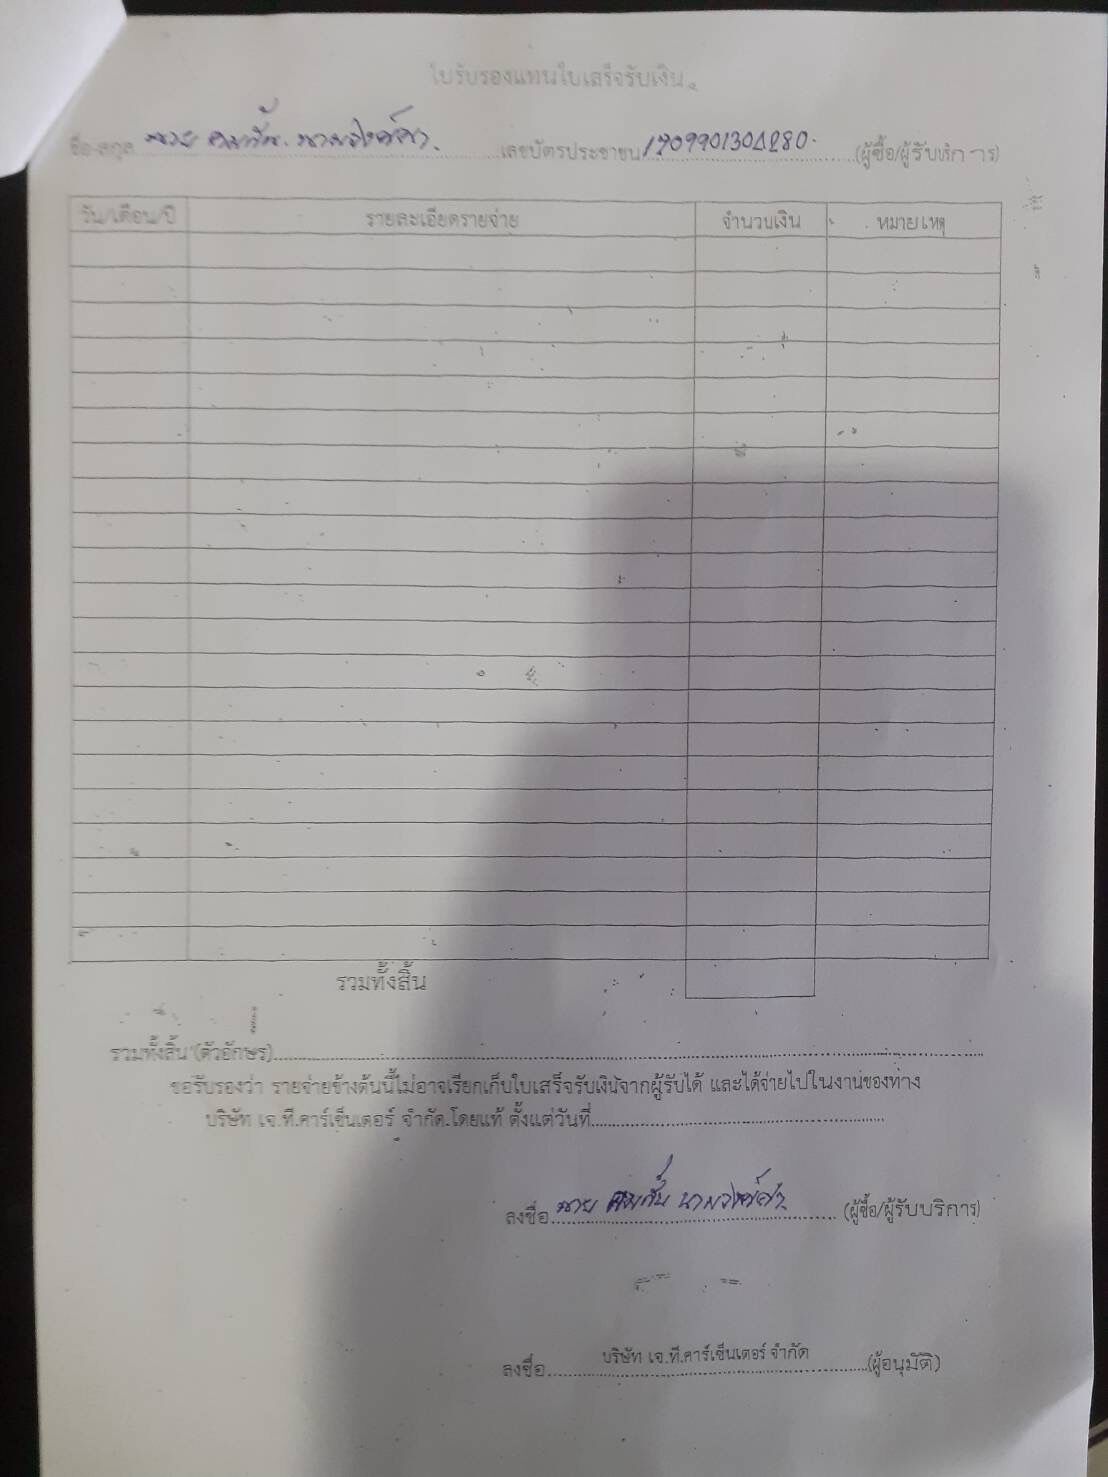 ใบรับรองแทนใบเสร็จรับเงิน
ชื่อ-สกุล นาย เลขบัตรประชาชน (ผู้ซื้อ/ผู้รับบริการ)
วัน/เดือน/ปี รายละเอียดรายจ่าย จำนวนเงิน หมายเหตุ
รวมทั้งสิ้น
รวมทั้งสิ้น (ตัวอักษร)
ขอรับรองว่า รายจ่ายข้างต้นนี้ไม่อาจเรียกเก็บใบเสร็จรับเงินจากผู้รับได้ และได้จ่ายไปในงานของทาง
บริษัท เจ.ที.คาร์เซ็นเตอร์ จำกัด.โดยแท้ ตั้งแต่วันที่
ลงชื่อ นาย (ผู้ซื้อ/ผู้รับบริการ)
ลงชื่อ บริษัท เจ.ที.คาร์เซ็นเตอร์ จำกัด (ผู้อนุมัติ)